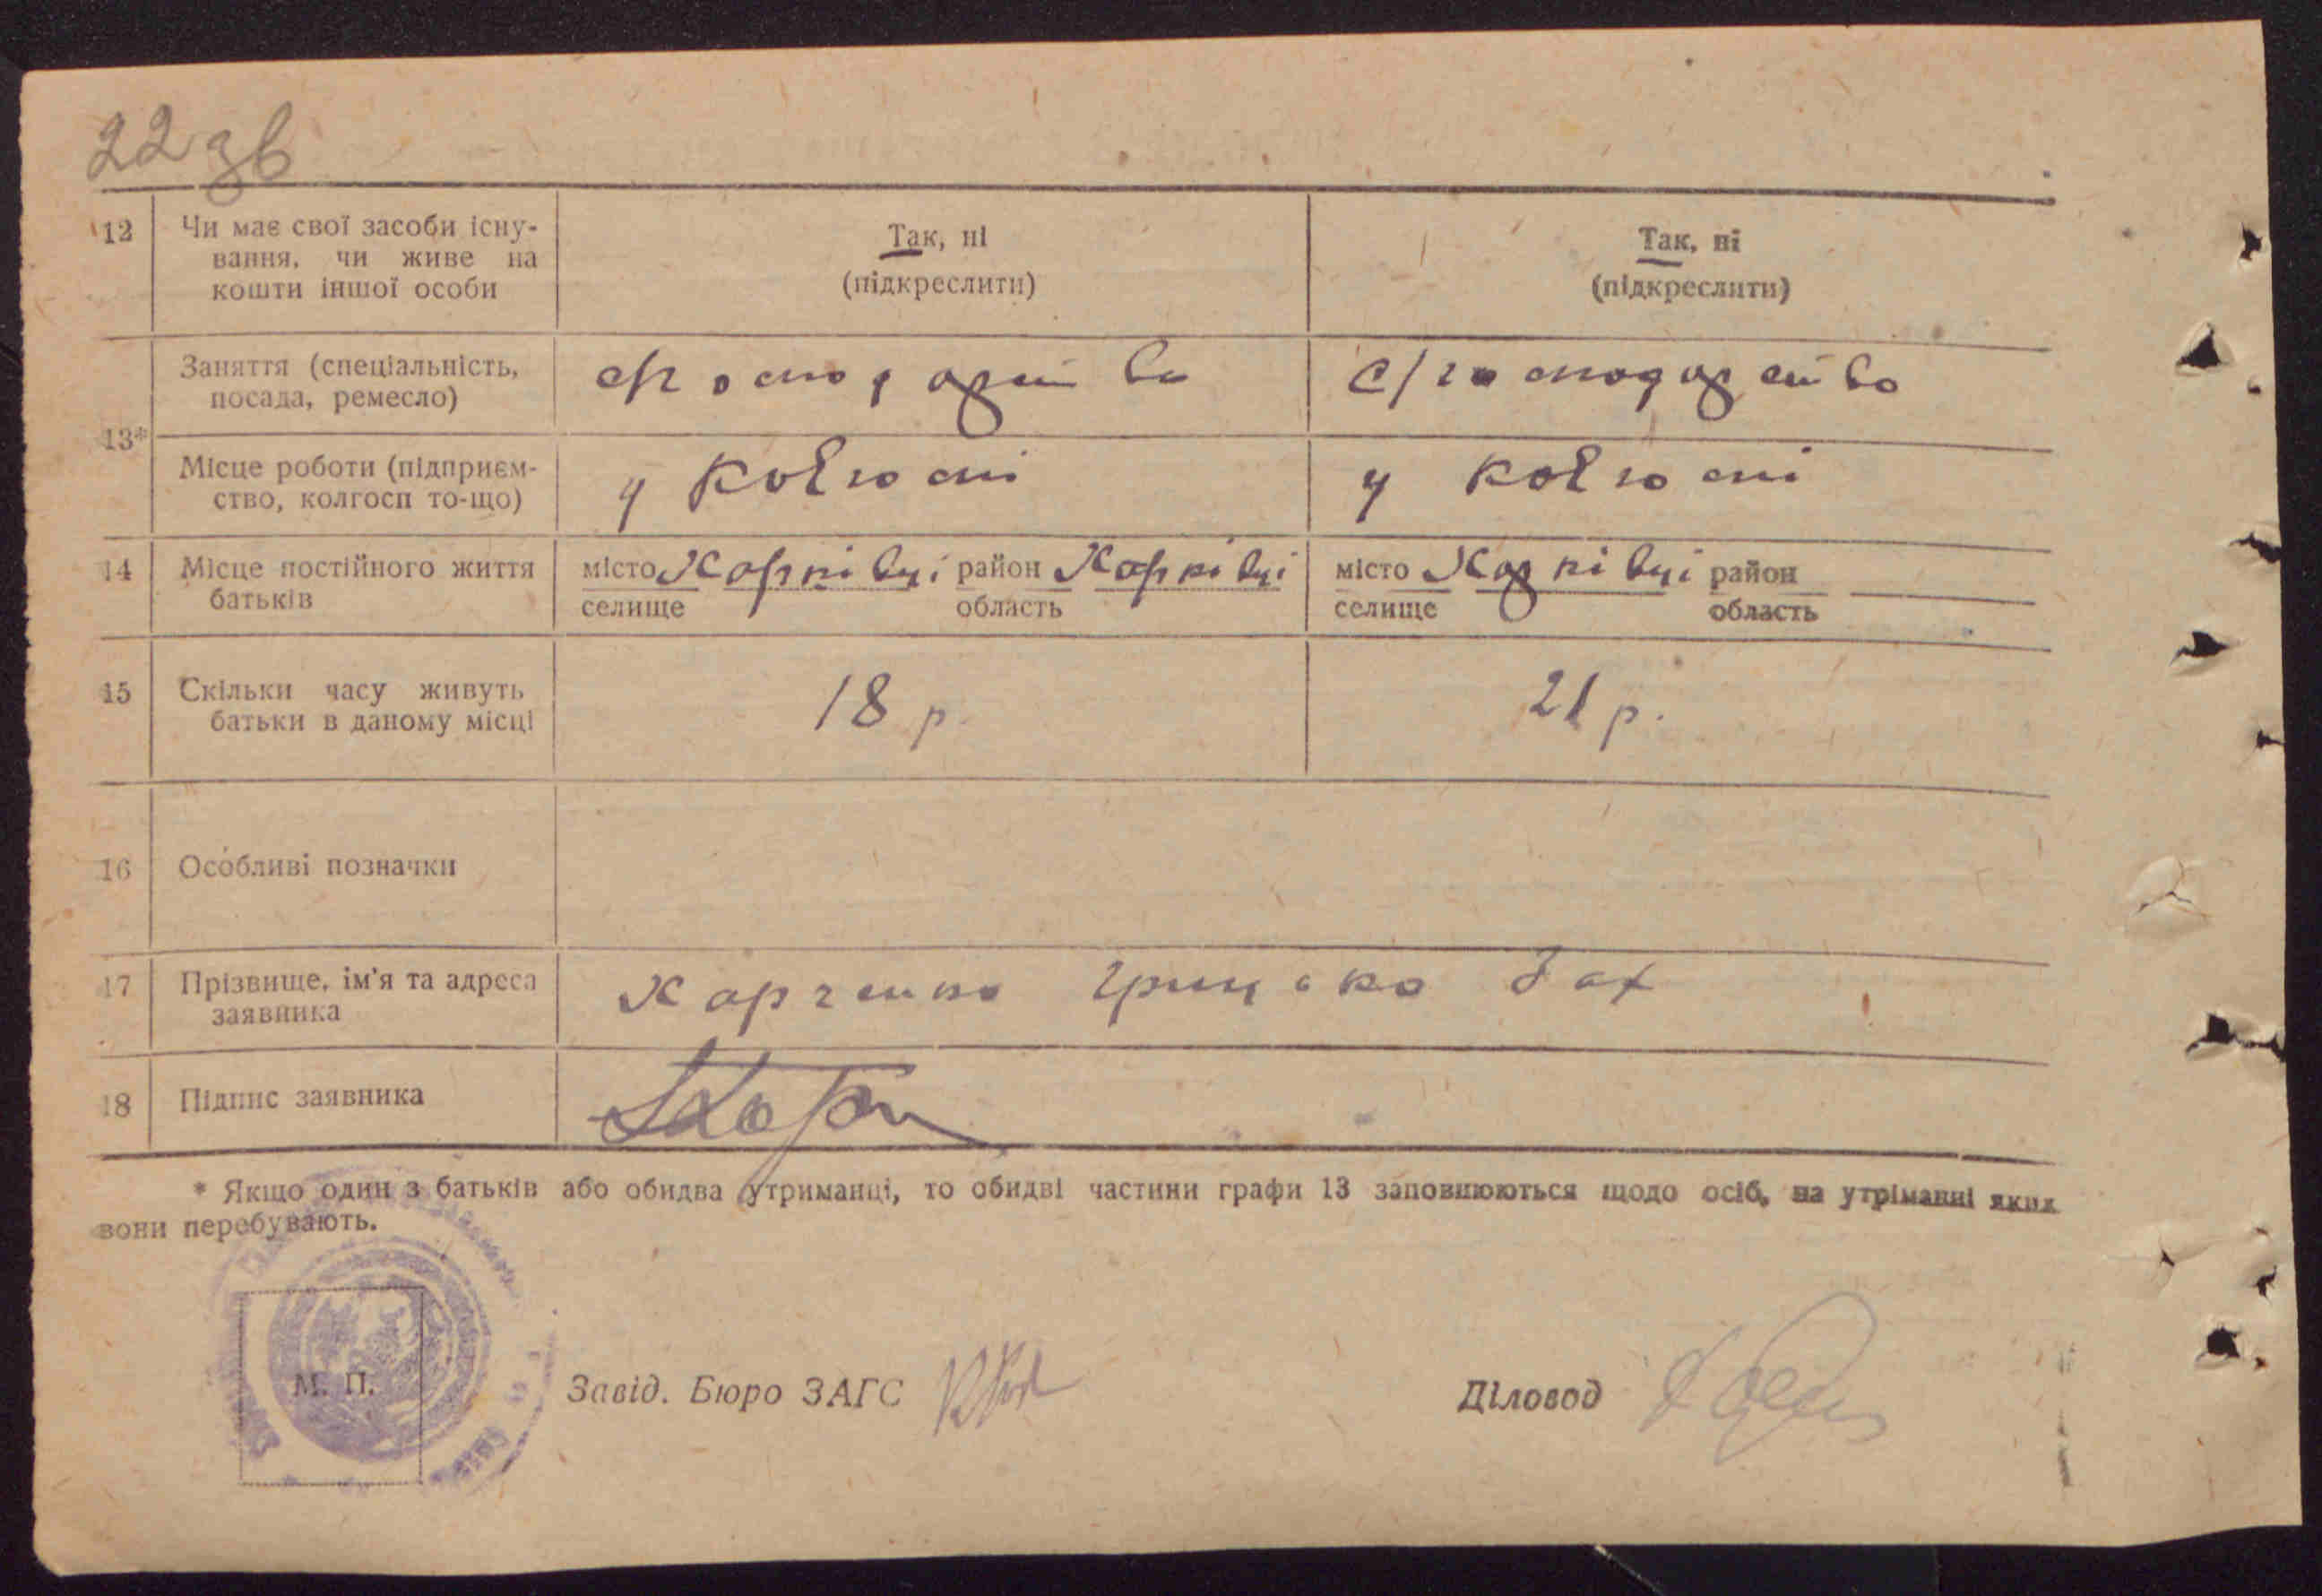 22 зв
12 Чи має свої засоби існу-
вання, чи живе на
кошти іншої особи
Так, ні
(підкреслити)
Так, ні
(підкреслити)
13*
Заняття (спеціальність,
посада, ремесло)
с/господарство
с/господарство
Місце роботи (підприєм-
ство, колгосп то-що)
у колгоспі
у колгоспі
14 Місце постійного життя
батьків
місто Карпівці район Карпівці
селище область
місто Карпівці район
селище область
15 Скільки часу живуть
батьки в даному місці
18 р.
21 р.
16 Особливі позначки
17 Прізвище, ім'я та адреса
заявника
Харченко Грицько Зах
18 Підпис заявника
* Якщо один з батьків або обидва утриманці, то обидві частини графи 13 заповнюються щодо осіб, на утріманні яких
вони перебувають.
М. П.
Завід. Бюро ЗАГС
Діловод